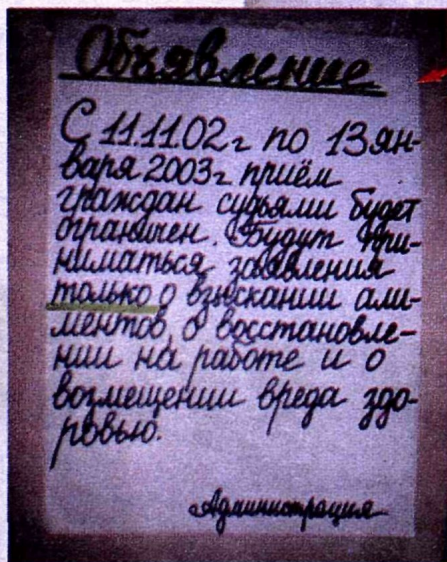 Объявление
С 11.11.02г по 13 ян-
варя 2003г приём
граждан судьями будет
ограничен. Будут при-
ниматься заявления
только о взыскании али-
ментов, о восстановле-
нии на работе и о
возмещении вреда здо-
ровью.
Администрация